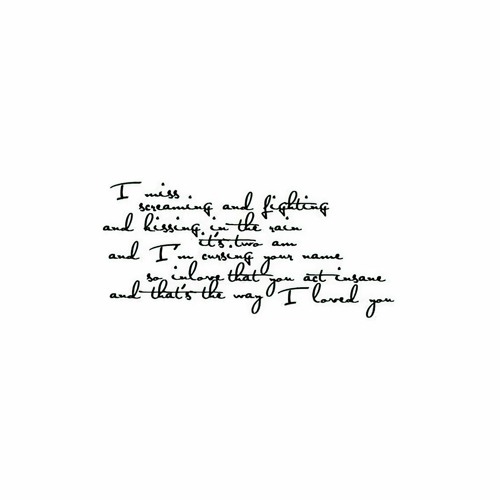 I miss
screaming and fighting
and kissing in the rain
it's two am
and I'm cursing your name
so inlove that you act insane
and that's the way I loved you